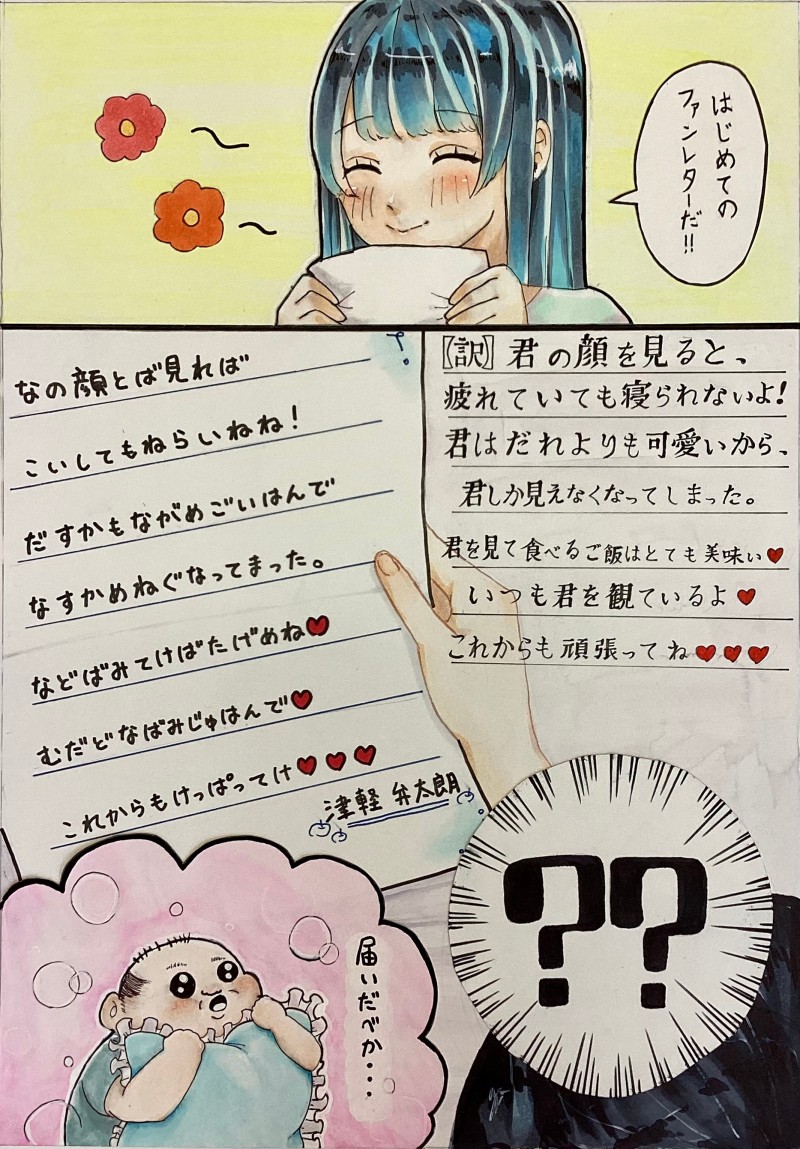 はじめての
ファンレターだ!!
なの顔とば見れば
こいしてもねらいねね!
だすかもながめごいはんで
なすかめねぐなってまった。
などばみてけばたげめね♥
むだどなばみじゅはんで♥
これからもけっぱってけ♥♥♥
津軽 弁太朗
〖訳〗君の顔を見ると、
疲れていても寝られないよ!
君はだれよりも可愛いから、
君しか見えなくなってしまった。
君を見て食べるご飯はとても美味い♥
いつも君を観ているよ♥
これからも頑張ってね♥♥♥
届いだべか・・・
??